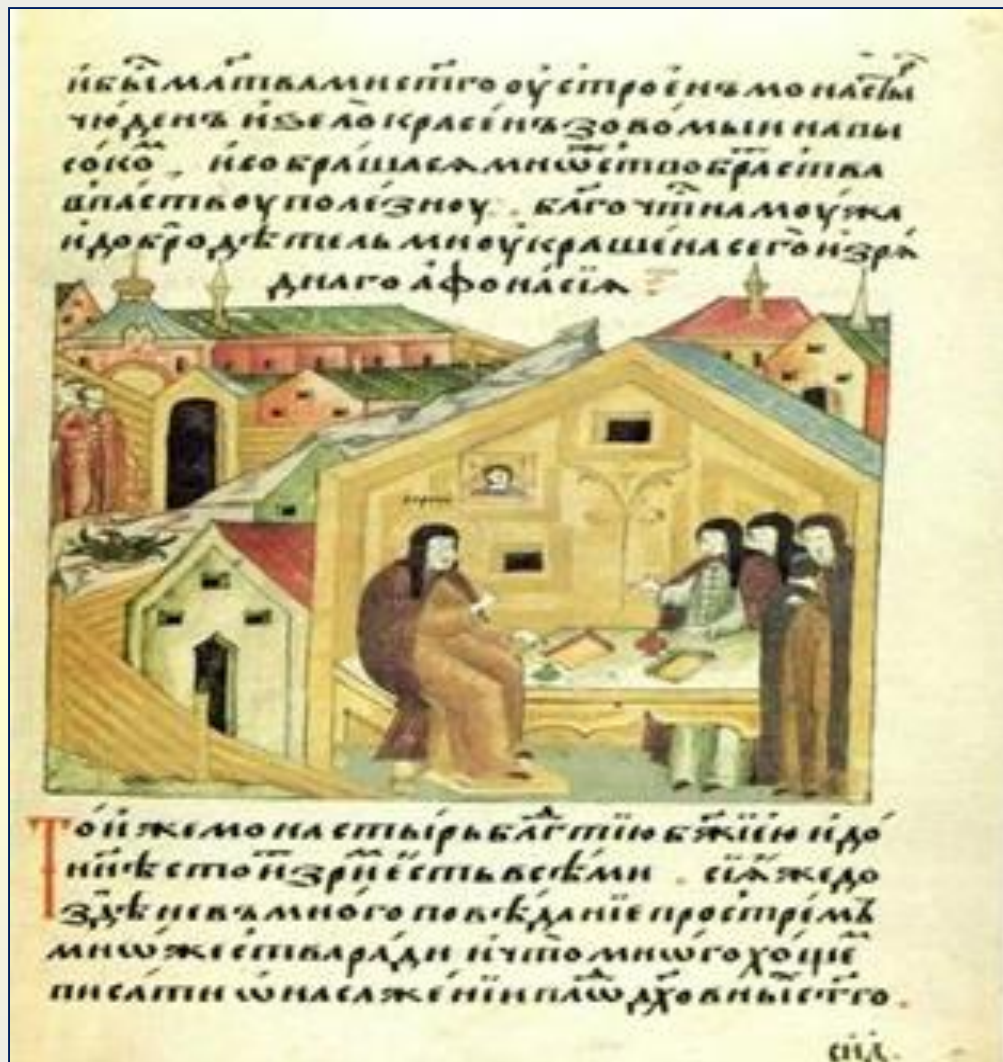 и҆бы́ мл҃твами ст҃го оу҆строе́нъ монасты́
чю́денъ и҆ѕело̀ красе́нъ зово́мыи навы
соко́ . и҆собра́шася мнѡ́ство бра́тства
впа́ствоу поле́зноу . бл҃гочти́на моу́жа
и҆доброде́тельми оу҆краше́на сего̀ изрѧ́
днаго а҆фона́сїа
То́и же монасты́рь бл҃гтїю б҃жїею и҆до́
нн҃ѣ стои́ зри́ е҆сть всѣ́ми . сїѧ̀ же до
здѣ̀ невъмно́го повѣ́данїе простре́мъ
мнѡ́жества ра́ди и҆что̀ мнѡ́го хо́щеⷨ
писати ѡ҆ насаже́нїи плаⷣѡ дх҃о́вныⷯ ст҃го .